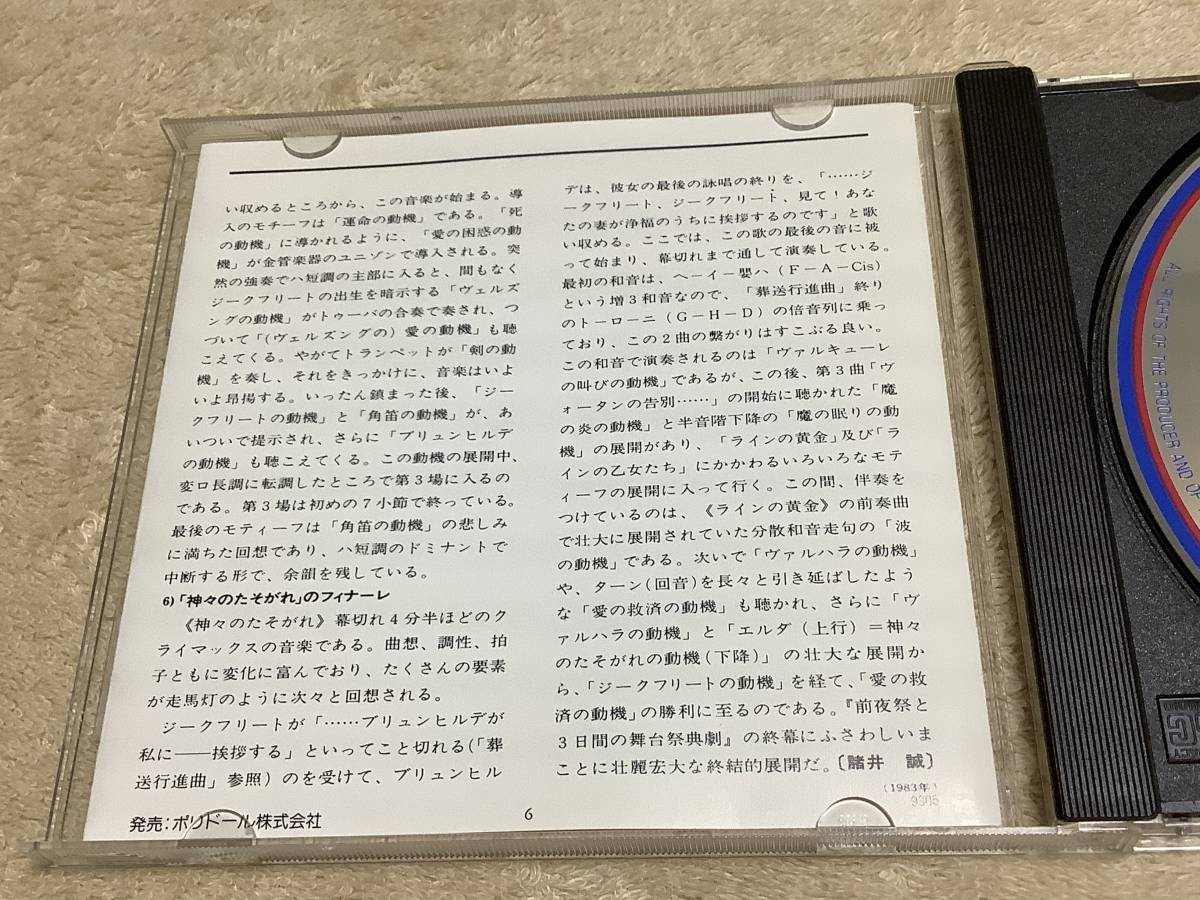 い収めるところから、この音楽が始まる。導
入のモチーフは「運命の動機」である。「死
の動機」に導かれるように、「愛の困惑の動
機」が金管楽器のユニゾンで導入される。突
然の強奏でハ短調の主部に入ると、間もなく
ジークフリートの出生を暗示する「ヴェルズ
ングの動機」がトゥーバの合奏で奏され、つ
づいて「(ヴェルズングの) 愛の動機」も聴
こえてくる。やがてトランペットが「剣の動
機」を奏し、それをきっかけに、音楽はいよ
いよ昂揚する。いったん鎮まった後、「ジー
クフリートの動機」と「角笛の動機」が、あ
いついで提示され、さらに「ブリュンヒルデ
の動機」も聴こえてくる。この動機の展開中、
変ロ長調に転調したところで第3場に入るの
である。第3場は初めの7小節で終っている。
最後のモティーフは「角笛の動機」の悲しみ
に満ちた回想であり、ハ短調のドミナントで
中断する形で、余韻を残している。
6)「神々のたそがれ」のフィナーレ
《神々のたそがれ》幕切れ4分半ほどのク
ライマックスの音楽である。曲想、調性、拍
子ともに変化に富んでおり、たくさんの要素
が走馬灯のように次々と回想される。
ジークフリートが「……ブリュンヒルデが
私に――挨拶する」といってこと切れる(「葬
送行進曲」参照) のを受けて、ブリュンヒル
デは、彼女の最後の詠唱の終りを、「……ジ
ークフリート、ジークフリート、見て!あな
たの妻が浄福のうちに挨拶するのです」と歌
い収める。ここでは、この歌の最後の音に被
って始まり、幕切れまで通して演奏している。
最初の和音は、ヘ−イ−嬰ハ (F−A−Cis)
という増3和音なので、「葬送行進曲」終り
のト−ロ−ニ (G−H−D) の倍音列に乗っ
ており、この2曲の繫がりはすこぶる良い。
この和音で演奏されるのは「ヴァルキューレ
の叫びの動機」であるが、この後、第3曲「ヴ
ォータンの告別……」の開始に聴かれた「魔
の炎の動機」と半音階下降の「魔の眠りの動
機」の展開があり、「ラインの黄金」及び「ラ
インの乙女たち」にかかわるいろいろなモテ
ィーフの展開に入って行く。この間、伴奏を
つけているのは、《ラインの黄金》の前奏曲
で壮大に展開されていた分散和音走句の「波
の動機」である。次いで「ヴァルハラの動機」
や、ターン(回音)を長々と引き延ばしたよう
な「愛の救済の動機」も聴かれ、さらに「ヴ
ァルハラの動機」と「エルダ (上行)＝神々
のたそがれの動機(下降)」の壮大な展開か
ら、「ジークフリートの動機」を経て、「愛の救
済の動機」の勝利に至るのである。『前夜祭と
3日間の舞台祭典劇』の終幕にふさわしいま
ことに壮麗宏大な終結的展開だ。〔諸井 誠〕
(1983年)
9305
発売:ポリドール株式会社
6
ALL RIGHTS OF THE PRODUCER AND OF